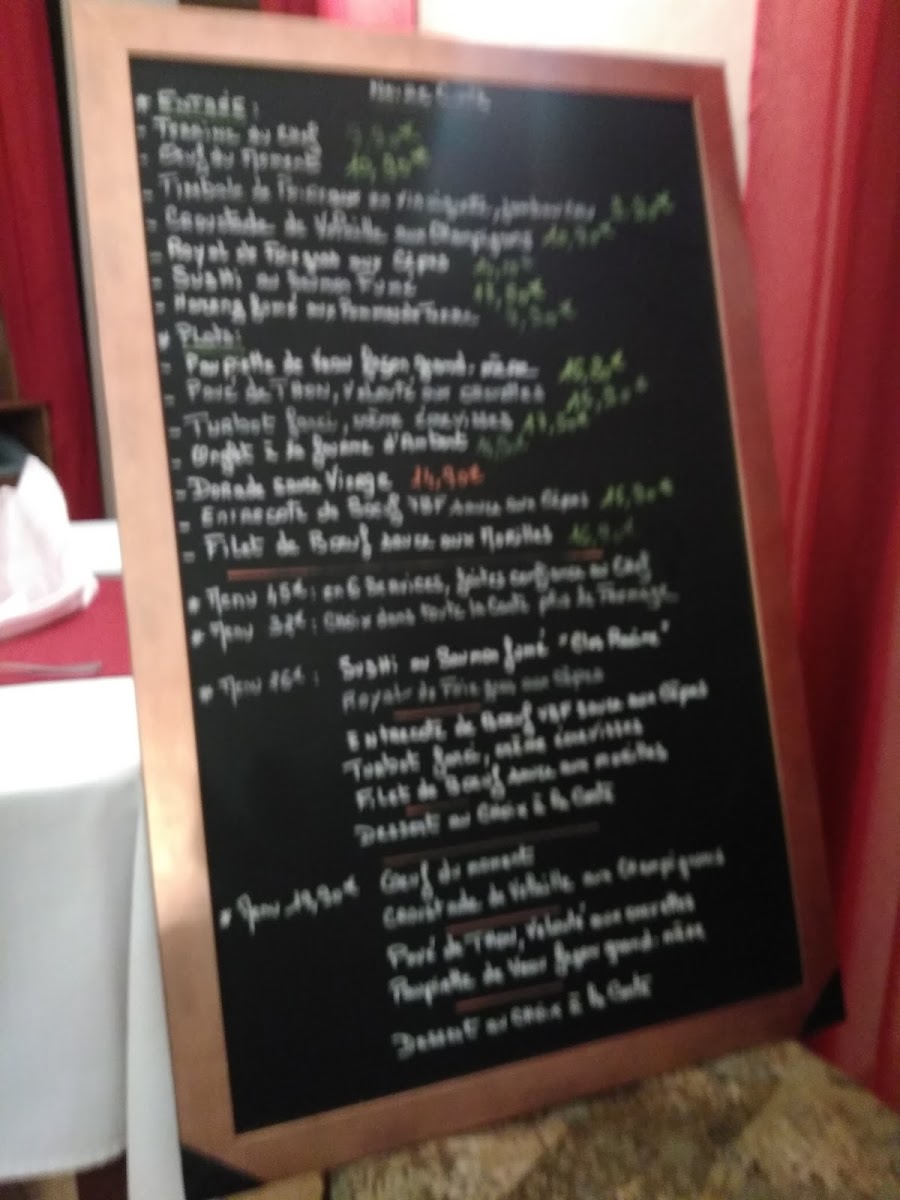 * ENTRÉE :
- Terrine du Chef 9,90€
- Oeuf du Moment 10,90€
- Timbale de en vinaigrette, 
- Croustade de Volaille aux Champignons 10,90€
- Royal de Foie gras aux Cèpes
- Sushi au Saumon Fumé
- Hareng fumé aux Pommes de Terre
* Plats :
- Paupiette de Veau façon grand-mère
- Pavé de THON, velouté aux carottes
- Turbot farci, crème écrevisses 17,90€
- Onglet à la
- Dorade sauce Vierge 14,90€
- Entrecôte de Boeuf VBF sauce aux Cèpes
- Filet de Boeuf sauce aux Morilles
* Menu 45€ : en 6 Services, faites confiance au Chef
* Menu : Choix dans toute la Carte plus le Fromage
* Menu 26€ : Sushi au Saumon fumé
Royal de Foie gras aux Cèpes
Entrecôte de Boeuf VBF sauce aux Cèpes
Turbot farci, crème écrevisses
Filet de Boeuf sauce aux morilles
Dessert au Choix à la Carte
* Menu 19,90€ Oeuf du moment
Croustade de Volaille aux Champignons
Pavé de THON, velouté aux carottes
Paupiette de Veau façon grand-mère
Dessert au Choix à la Carte